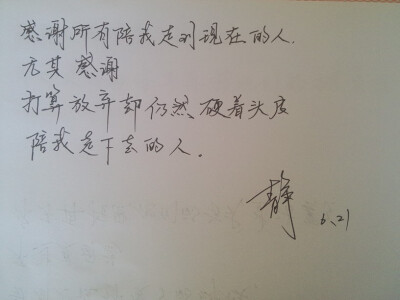 感谢所有陪我走到现在的人.
尤其感谢
打算放弃却仍然硬着头皮
陪我走下去的人.
静
6.21